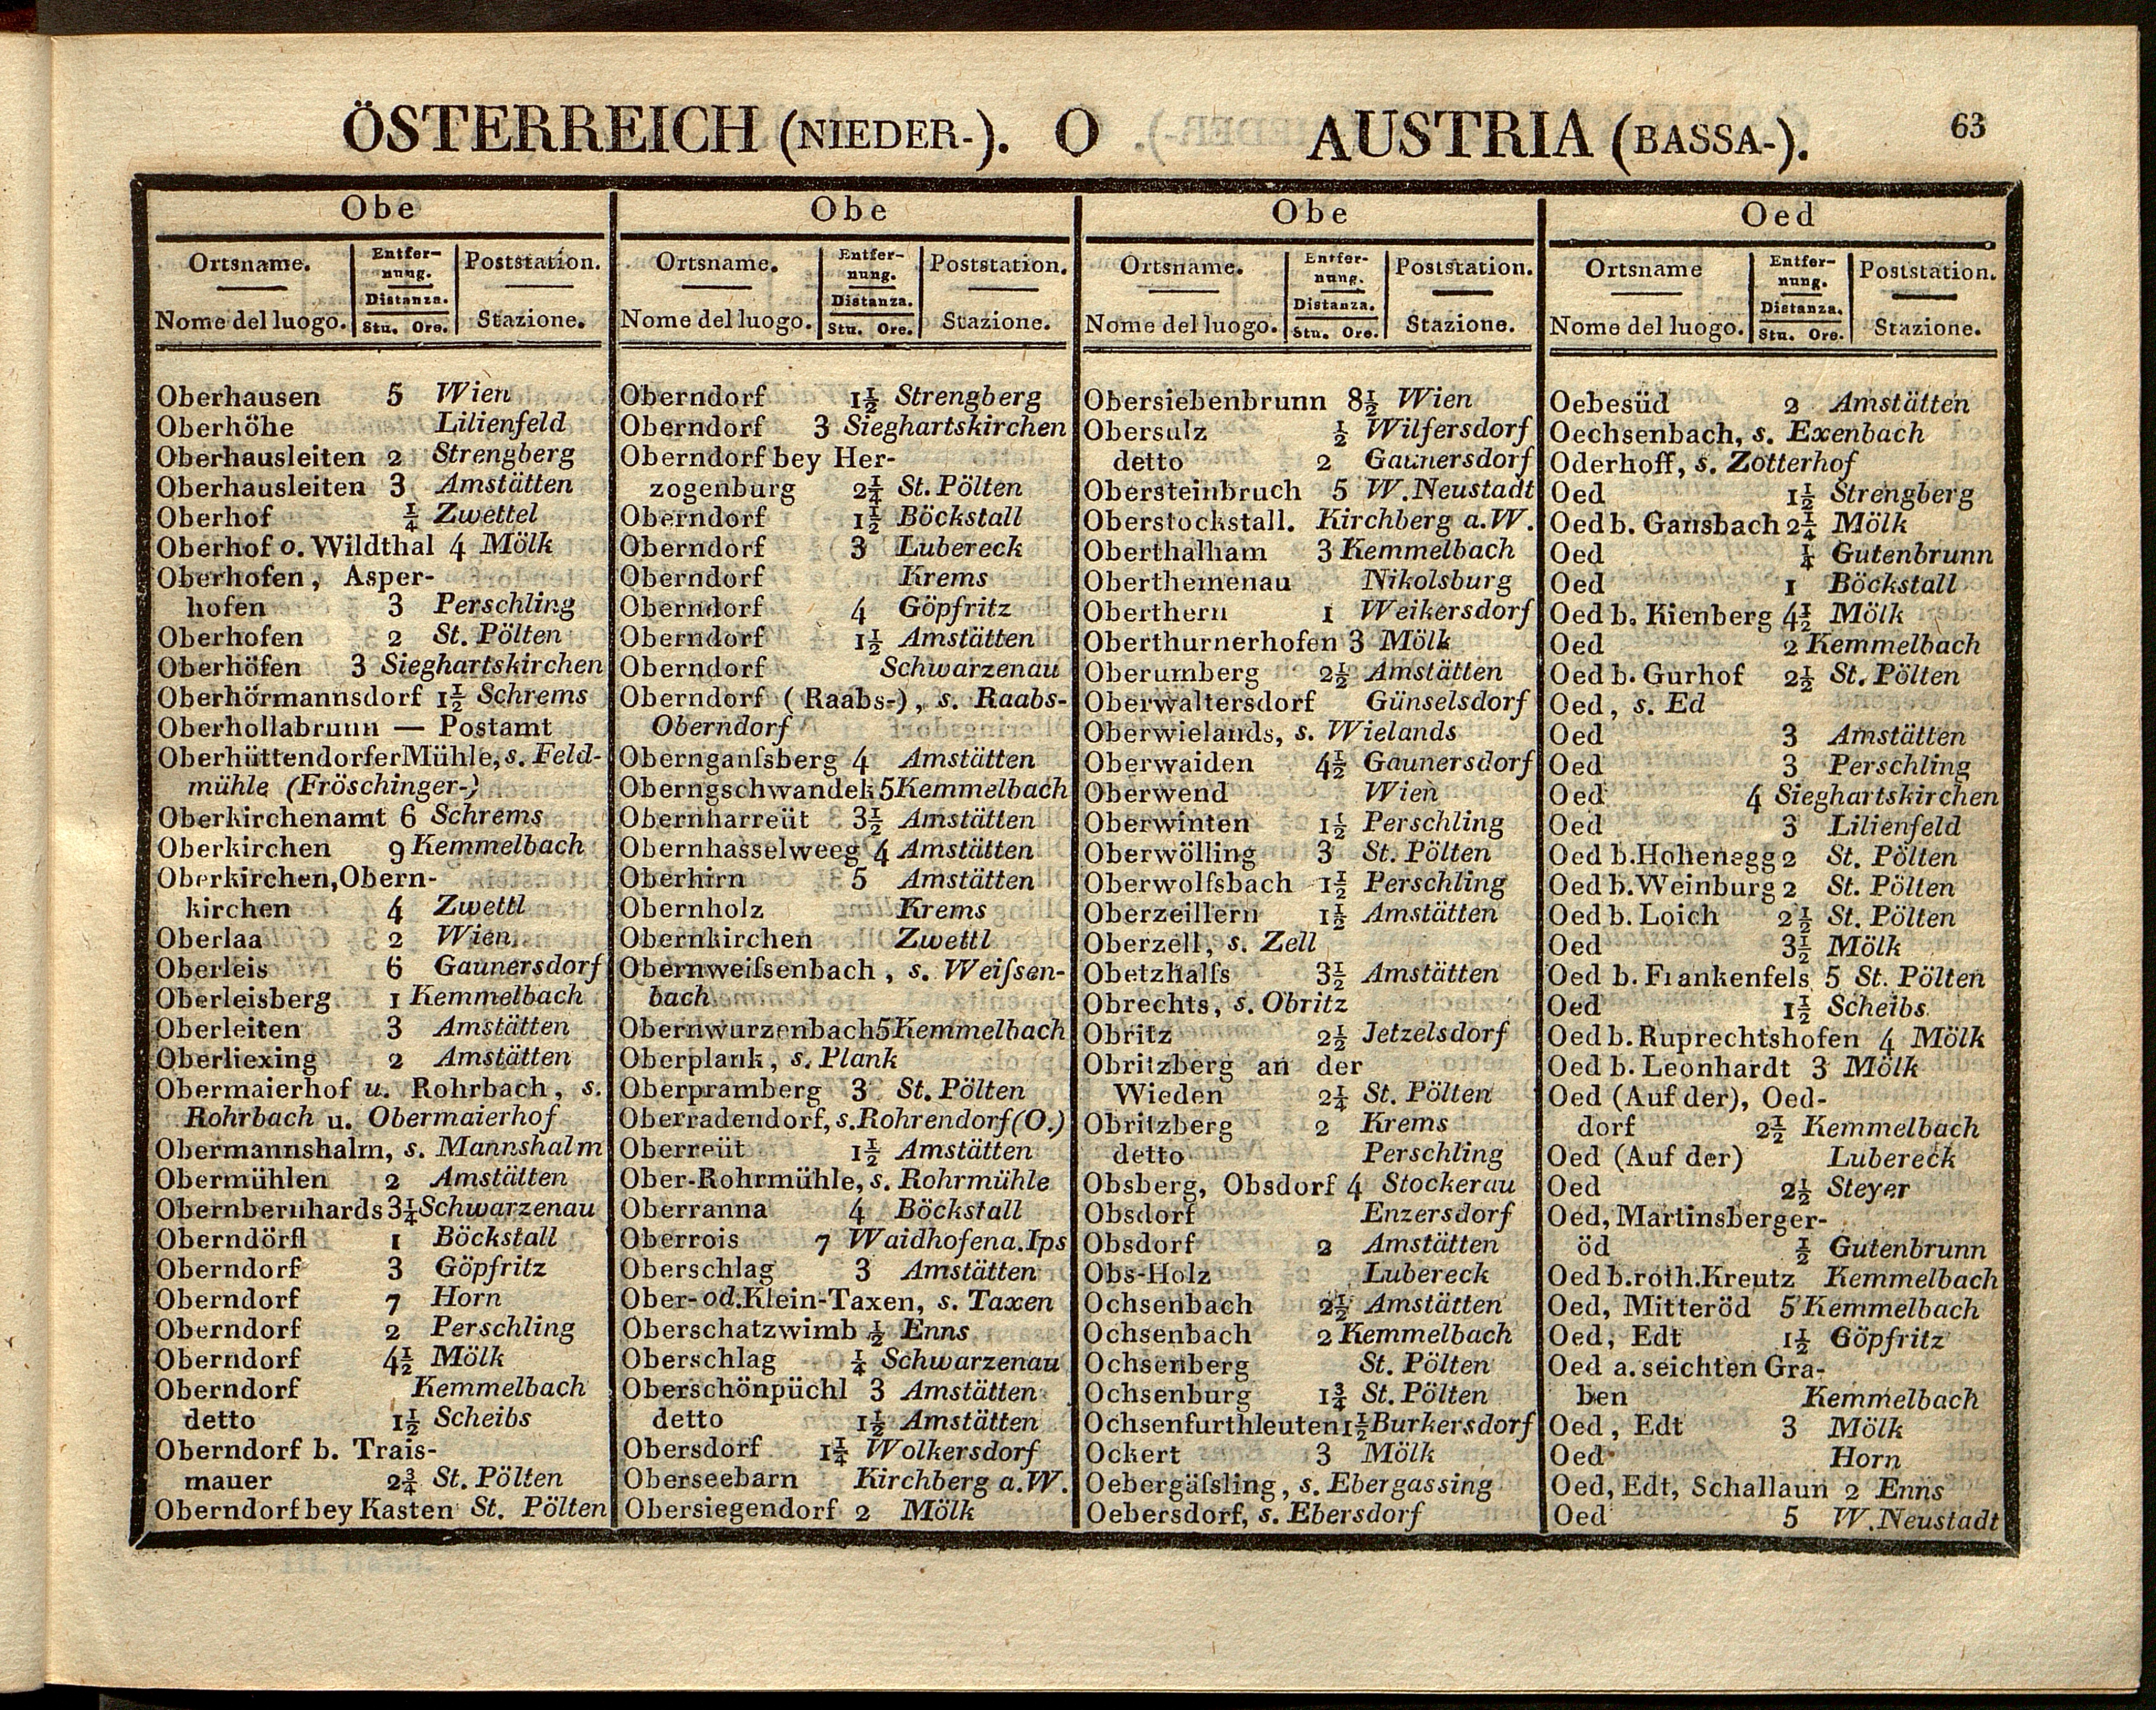 ÖSTERREICH (NIEDER-). O AUSTRIA (BASSA-). 63
Obe
Ortsname. Entfer- Poststation.
nung.
Distanza.
Nome del luogo. Stu. Ore. Stazione.
Oberhausen 5 Wien
Oberhöhe Lilienfeld
Oberhausleiten 2 Strengberg
Oberhausleiten 3 Amstätten
Oberhof ¼ Zwettel
Oberhof o. Wildthal 4 Mölk
Oberhofen, Asper-
hofen 3 Perschling
Oberhofen 2 St. Pölten
Oberhöfen 3 Sieghartskirchen
Oberhörmannsdorf 1½ Schrems
Oberhollabrunn — Postamt
Oberhüttendorfer Mühle, s. Feld-
mühle (Fröschinger-)
Oberkirchenamt 6 Schrems
Oberkirchen 9 Kemmelbach
Oberkirchen, Obern-
kirchen 4 Zwettl
Oberlaa 2 Wien
Oberleis 6 Gaunersdorf
Oberleisberg 1 Kemmelbach
Oberleiten 3 Amstätten
Oberliexing 2 Amstätten
Obermaierhof u. Rohrbach, s.
Rohrbach u. Obermaierhof
Obermannshalm, s. Mannshalm
Obermühlen 2 Amstätten
Obernbernhards 3¼ Schwarzenau
Oberndörfl 1 Böckstall
Oberndorf 3 Göpfritz
Oberndorf 7 Horn
Oberndorf 2 Perschling
Oberndorf 4½ Mölk
Oberndorf Kemmelbach
detto 1½ Scheibs
Oberndorf b. Trais-
mauer 2¾ St. Pölten
Oberndorf bey Kasten St. Pölten
Obe
Ortsname. Entfer- Poststation.
nung.
Distanza.
Nome del luogo. Stu. Ore. Stazione.
Oberndorf 1½ Strengberg
Oberndorf 3 Sieghartskirchen
Oberndorf bey Her-
zogenburg 2¼ St. Pölten
Oberndorf 1½ Böckstall
Oberndorf 3 Lubereck
Oberndorf Krems
Oberndorf 4 Göpfritz
Oberndorf 1½ Amstätten
Oberndorf Schwarzenau
Oberndorf (Raabs-), s. Raabs-
Oberndorf
Obernganſsberg 4 Amstätten
Oberngschwandek 5 Kemmelbach
Obernharreüt 3½ Amstätten
Obernhasselweeg 4 Amstätten
Oberhirn 5 Amstätten
Obernholz Krems
Obernkirchen Zwettl
Obernweiſsenbach, s. Weiſsen-
bach
Obernwurzenbach 5 Kemmelbach
Oberplank, s. Plank
Oberpramberg 3 St. Pölten
Oberradendorf, s. Rohrendorf (O.)
Oberreüt 1½ Amstätten
Ober-Rohrmühle, s. Rohrmühle
Oberranna 4 Böckstall
Oberrois 7 Waidhofen a. Ips
Oberschlag 3 Amstätten
Ober- od. Klein-Taxen, s. Taxen
Oberschatzwimb ½ Enns
Oberschlag ¼ Schwarzenau
Oberschönpüchl 3 Amstätten
detto 1½ Amstätten
Obersdorf 1¼ Wolkersdorf
Oberseebarn Kirchberg a. W.
Obersiegendorf 2 Mölk
Obe
Ortsname. Entfer- Poststation.
nung.
Distanza.
Nome del luogo. Stu. Ore. Stazione.
Obersiebenbrunn 8½ Wien
Obersulz ½ Wilfersdorf
detto 2 Gaunersdorf
Obersteinbruch 5 W. Neustadt
Oberstockstall. Kirchberg a. W.
Oberthalham 3 Kemmelbach
Oberthemenau Nikolsburg
Oberthern 1 Weikersdorf
Oberthurnerhofen 3 Mölk
Oberumberg 2½ Amstätten
Oberwaltersdorf Günselsdorf
Oberwielands, s. Wielands
Oberwaiden 4½ Gaunersdorf
Oberwend Wien
Oberwinten 1½ Perschling
Oberwölling 3 St. Pölten
Oberwolfsbach 1½ Perschling
Oberzeillern 1½ Amstätten
Oberzell, s. Zell
Obetzhalſs 3½ Amstätten
Obrechts, s. Obritz
Obritz 2½ Jetzelsdorf
Obritzberg an der
Wieden 2¼ St. Pölten
Obritzberg 2 Krems
detto Perschling
Obsberg, Obsdorf 4 Stockerau
Obsdorf Enzersdorf
Obsdorf 2 Amstätten
Obs-Holz Lubereck
Ochsenbach 2½ Amstätten
Ochsenbach 2 Kemmelbach
Ochsenberg St. Pölten
Ochsenburg 1¾ St. Pölten
Ochsenfurthleuten 1½ Burkersdorf
Ockert 3 Mölk
Oebergäſsling, s. Ebergassing
Oebersdorf, s. Ebersdorf
Oed
Ortsname Entfer- Poststation.
nung.
Distanza.
Nome del luogo. Stu. Ore. Stazione.
Oebesüd 2 Amstätten
Oechsenbach, s. Exenbach
Oderhoff, s. Zotterhof
Oed 1½ Strengberg
Oed b. Gansbach 2¼ Mölk
Oed ¼ Gutenbrunn
Oed 1 Böckstall
Oed b. Kienberg 4½ Mölk
Oed 2 Kemmelbach
Oed b. Gurhof 2½ St. Pölten
Oed, s. Ed
Oed 3 Amstätten
Oed 3 Perschling
Oed 4 Sieghartskirchen
Oed 3 Lilienfeld
Oed b. Hohenegg 2 St. Pölten
Oed b. Weinburg 2 St. Pölten
Oed b. Loich 2½ St. Pölten
Oed 3½ Mölk
Oed b. Frankenfels 5 St. Pölten
Oed 1½ Scheibs
Oed b. Ruprechtshofen 4 Mölk
Oed b. Leonhardt 3 Mölk
Oed (Auf der), Oed-
dorf 2½ Kemmelbach
Oed (Auf der) Lubereck
Oed 2½ Steyer
Oed, Martinsberger-
öd ½ Gutenbrunn
Oed b. roth. Kreutz Kemmelbach
Oed, Mitteröd 5 Kemmelbach
Oed, Edt 1½ Göpfritz
Oed a. seichten Gra-
ben Kemmelbach
Oed, Edt 3 Mölk
Oed Horn
Oed, Edt, Schallaun 2 Enns
Oed 5 W. Neustadt